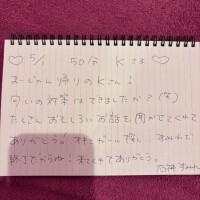 ♡ 5/1 50分 Kさま ♡
まーじゃん帰りのKさん!
匂いの対策はできましたか?(笑)
たくさんおもしろいお話を聞かせてくれて
ありがとう。オキニガール探し すみれで
終了でからね!来てくれてありがとう。
石神すみれ